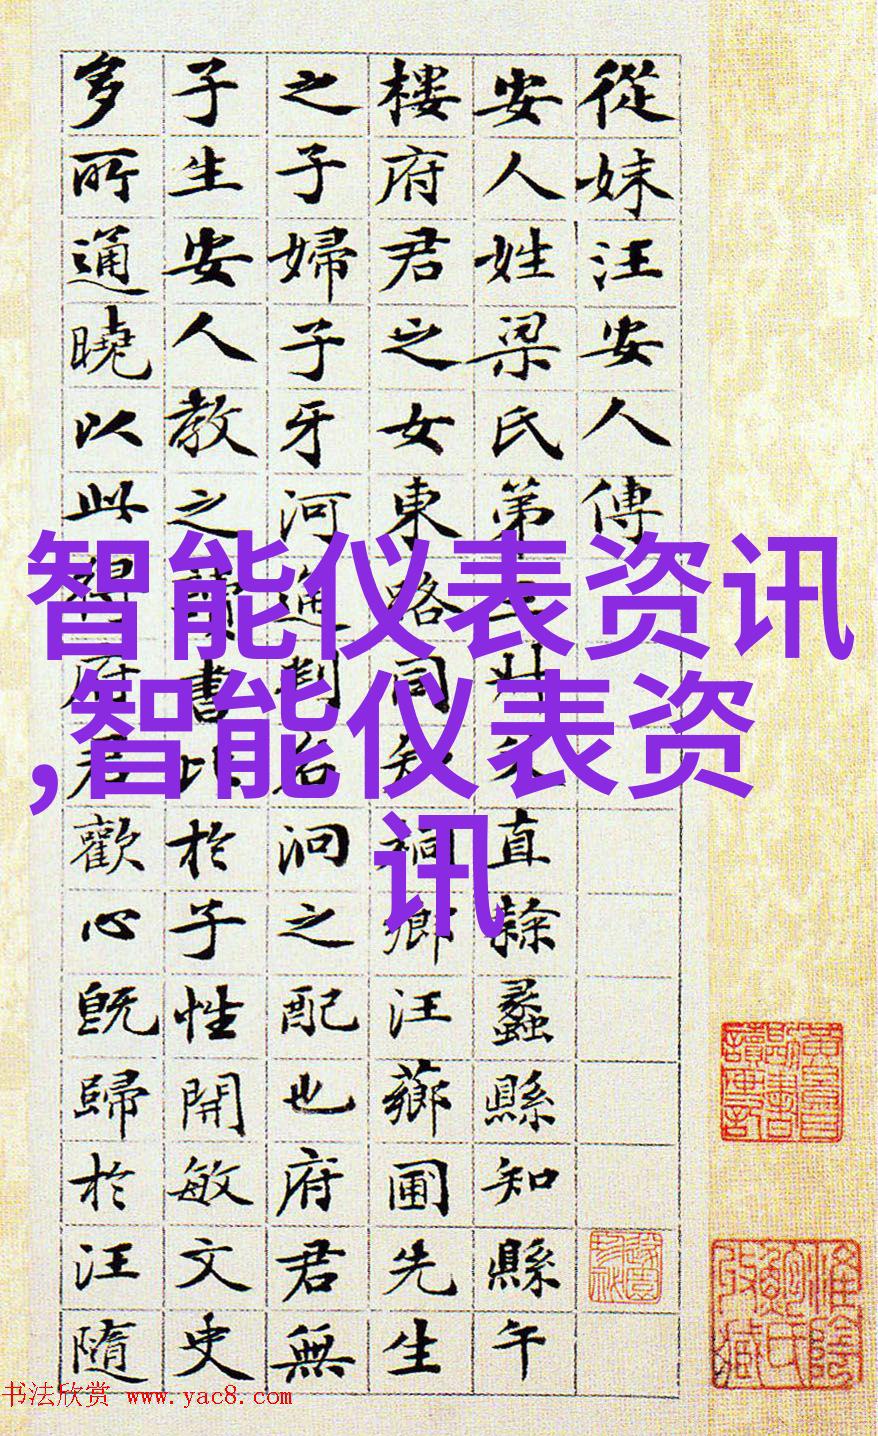 從妹汪安人傳
安人姓梁氏第直隸蠡縣知縣午
樓府君之女東路同知桐鄉汪薌圃先生
之子婦子牙河通判名泂之配也府君無
子生安人教之讀書比於子性開敏文史
多所通曉以此得府君歡心旣歸於汪隨
智能仪表资讯
,智能仪表资
讯
书法欣赏 www.yac8.com